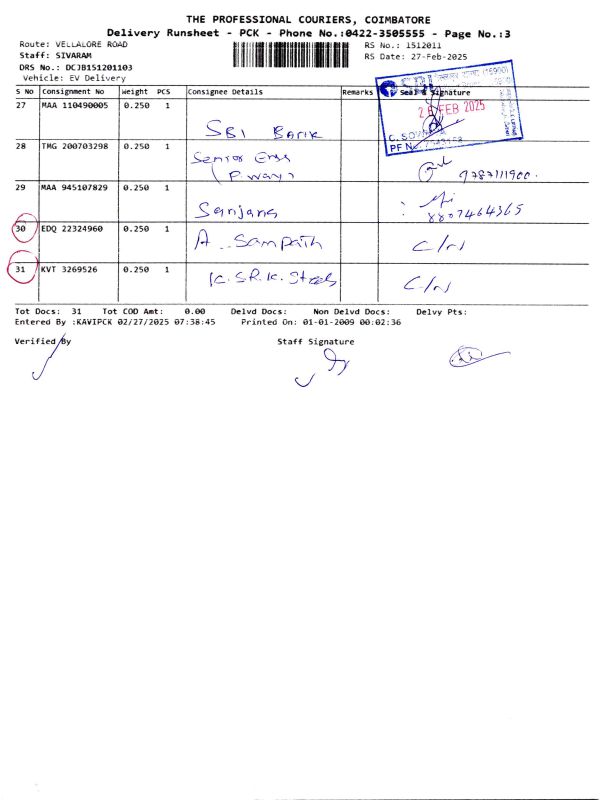 THE PROFESSIONAL COURIERS, COIMBATORE
Delivery Runsheet - PCK - Phone No.:0422-3505555 - Page No.:3
Route: VELLALORE ROAD RS No.: 1512011
Staff: SIVARAM RS Date: 27-Feb-2025
DRS No.: DCJB151201103
Vehicle: EV Delivery
S No Consignment No Weight PCS Consignee Details Remarks Seal & Signature
27 MAA 110490005 0.250 1 SBI Bank
FEB 2025
PF No.
28 TMG 200703298 0.250 1 Senior Engg
(P.way) 9787111900.
29 MAA 945107829 0.250 1 Sanjana
8807464365
30 EDQ 22324960 0.250 1 A. Sampath C/N
31 KVT 3269526 0.250 1 K. SR. K. Steels C/N
Tot Docs: 31 Tot COD Amt: 0.00 Delvd Docs: Non Delvd Docs: Delvy Pts:
Entered By :KAVIPCK 02/27/2025 07:38:45 Printed On: 01-01-2009 00:02:36
Verified By Staff Signature